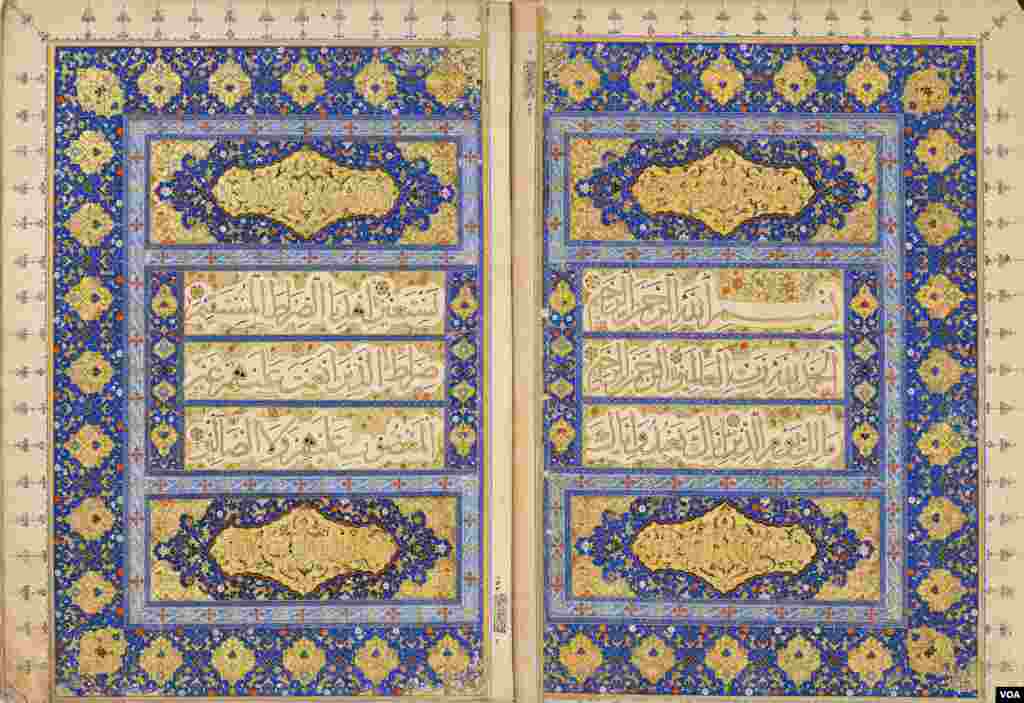 بسم الله الرحمن الرحيم
الحمد لله رب العالمين الرحمن الرحيم
مالك يوم الدين اياك نعبد واياك
نستعين اهدنا الصراط المستقيم
صراط الذين انعمت عليهم غير
المغضوب عليهم ولا الضالين
VOA